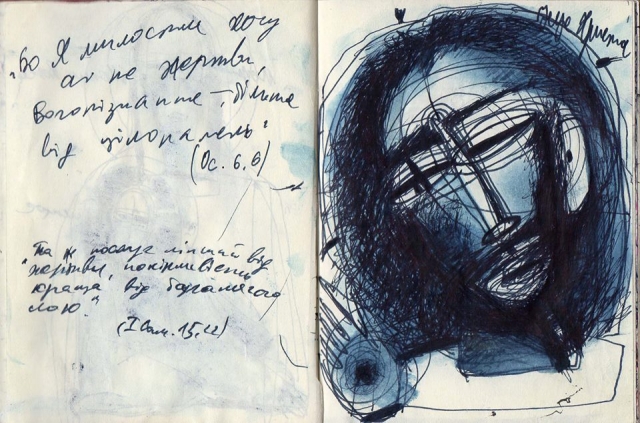 „Бо Я милости хочу
а не жертви,
Богопізнання – більше
від цілопалень“
(Ос. 6, 6)
"Та ж послух ліпший від
жертви, покірливість
краща від баранячого
лою."
(I Сам. 15, 22)
Христа